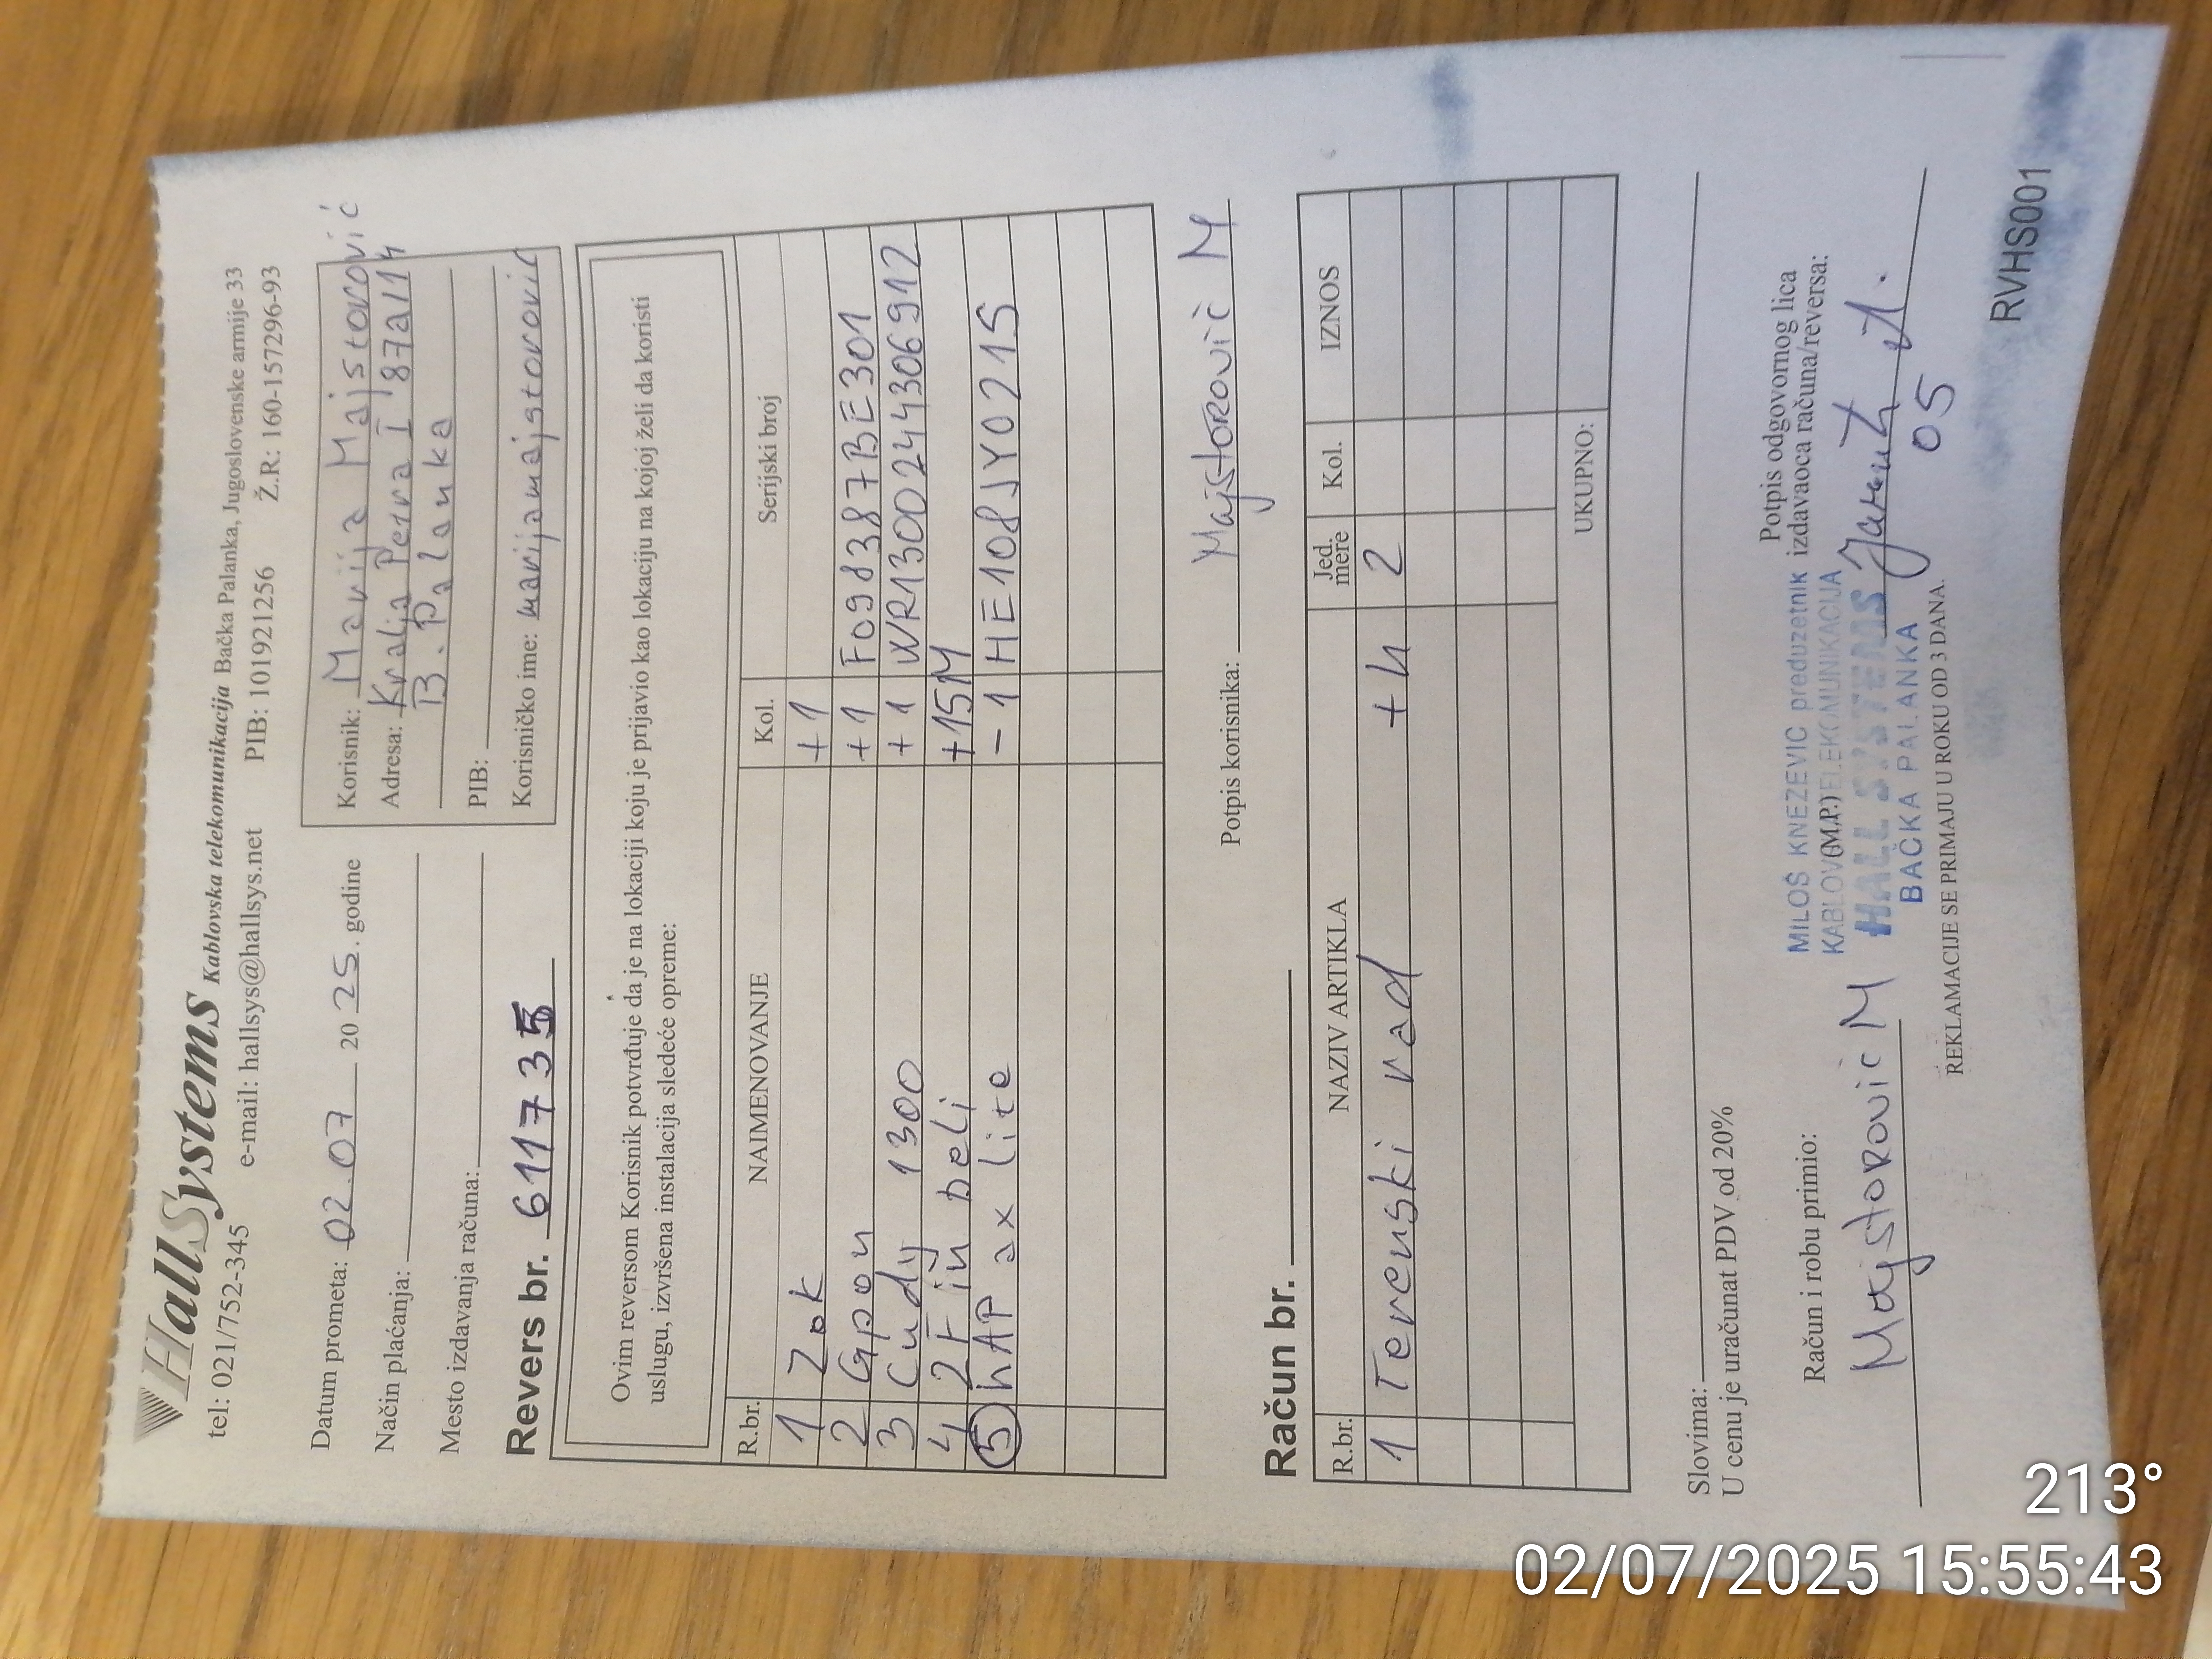 HallSystems Kablovska telekomunikacija Bačka Palanka, Jugoslovenske armije 33
tel: 021/752-345 e-mail: hallsys@hallsys.net PIB: 101921256 Ž.R: 160-1577296-93
Datum prometa: 02.07 2025. godine
Način plaćanja:
Mesto izdavanja računa:
Korisnik: Marija Majstorović
Adresa: Kralja Petra I 87a/14
B. Palanka
PIB:
Korisničko ime: marijamajstorovic
Revers br. 611735
Ovim reversom Korisnik potvrđuje da je na lokaciji koju je prijavio kao lokaciju na kojoj želi da koristi
uslugu, izvršena instalacija sledeće opreme:
R.br. NAIMENOVANJE Kol. Serijski broj
1 Zok +1
2 Gpon +1 F09d387BE301
3 Cudy 1300 +1 WR1300244306912
4 2Fin beli +15M
5 hAP ax lite -1 HE108JY021S
Potpis korisnika: Majstorovič M
Račun br.
R.br. NAZIV ARTIKLA Jed. mere Kol. IZNOS
1 Terenski rad +h 2
UKUPNO:
Slovima:
U cenu je uračunat PDV od 20%
Račun i robu primio:
Majstorovič M
Potpis odgovornog lica
izdavaoca računa/reversa:
MILOŠ KNEZEVIC preduzetnik
KABLOV(M.P.)TELEKOMUNIKACIJA
HALL SYSTEMS
BAČKA PALANKA
05
REKLAMACIJE SE PRIMAJU U ROKU OD 3 DANA.
RVHS001
213°
02/07/2025 15:55:43